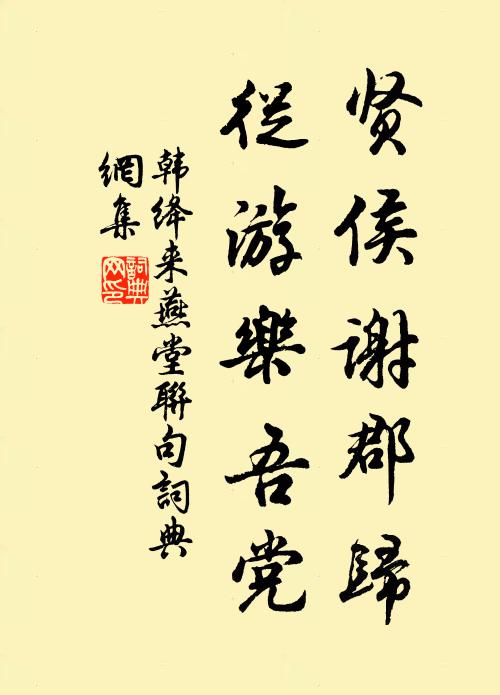 贤侯谢郡歸
從游樂吾党
韩绛来燕堂聯句詞典
網集
詞典網印